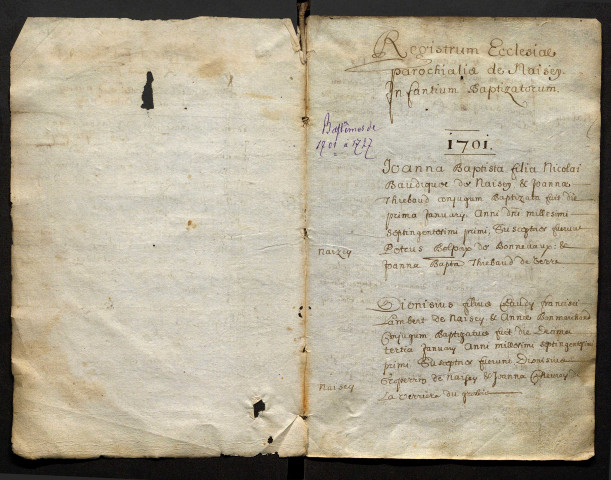 Registrum Ecclesiae
parochialis de Naisey
Infantium Baptizatorum.
Baptêmes de
1701 a 1727
1701.
Joanna Baptista filia Nicolai
de Naisey & Joanna
Thiebaud conjugum Baptizata fuit die
prima January Anni dni millesimi
septingentesimi primi, Susceptores fuerunt
Petrus de &
Joanna Bapta Thiebaud de
Naizey
Dionisius filius Claudy francisci
Lambert de Naisey & Annae
Conjugum Baptizatus fuit die
tertia January Anni millesimi septingentesimi
primi Susceptores fuerunt Dionisius
de Naisey & Joanna de
La verriere du
Naisey